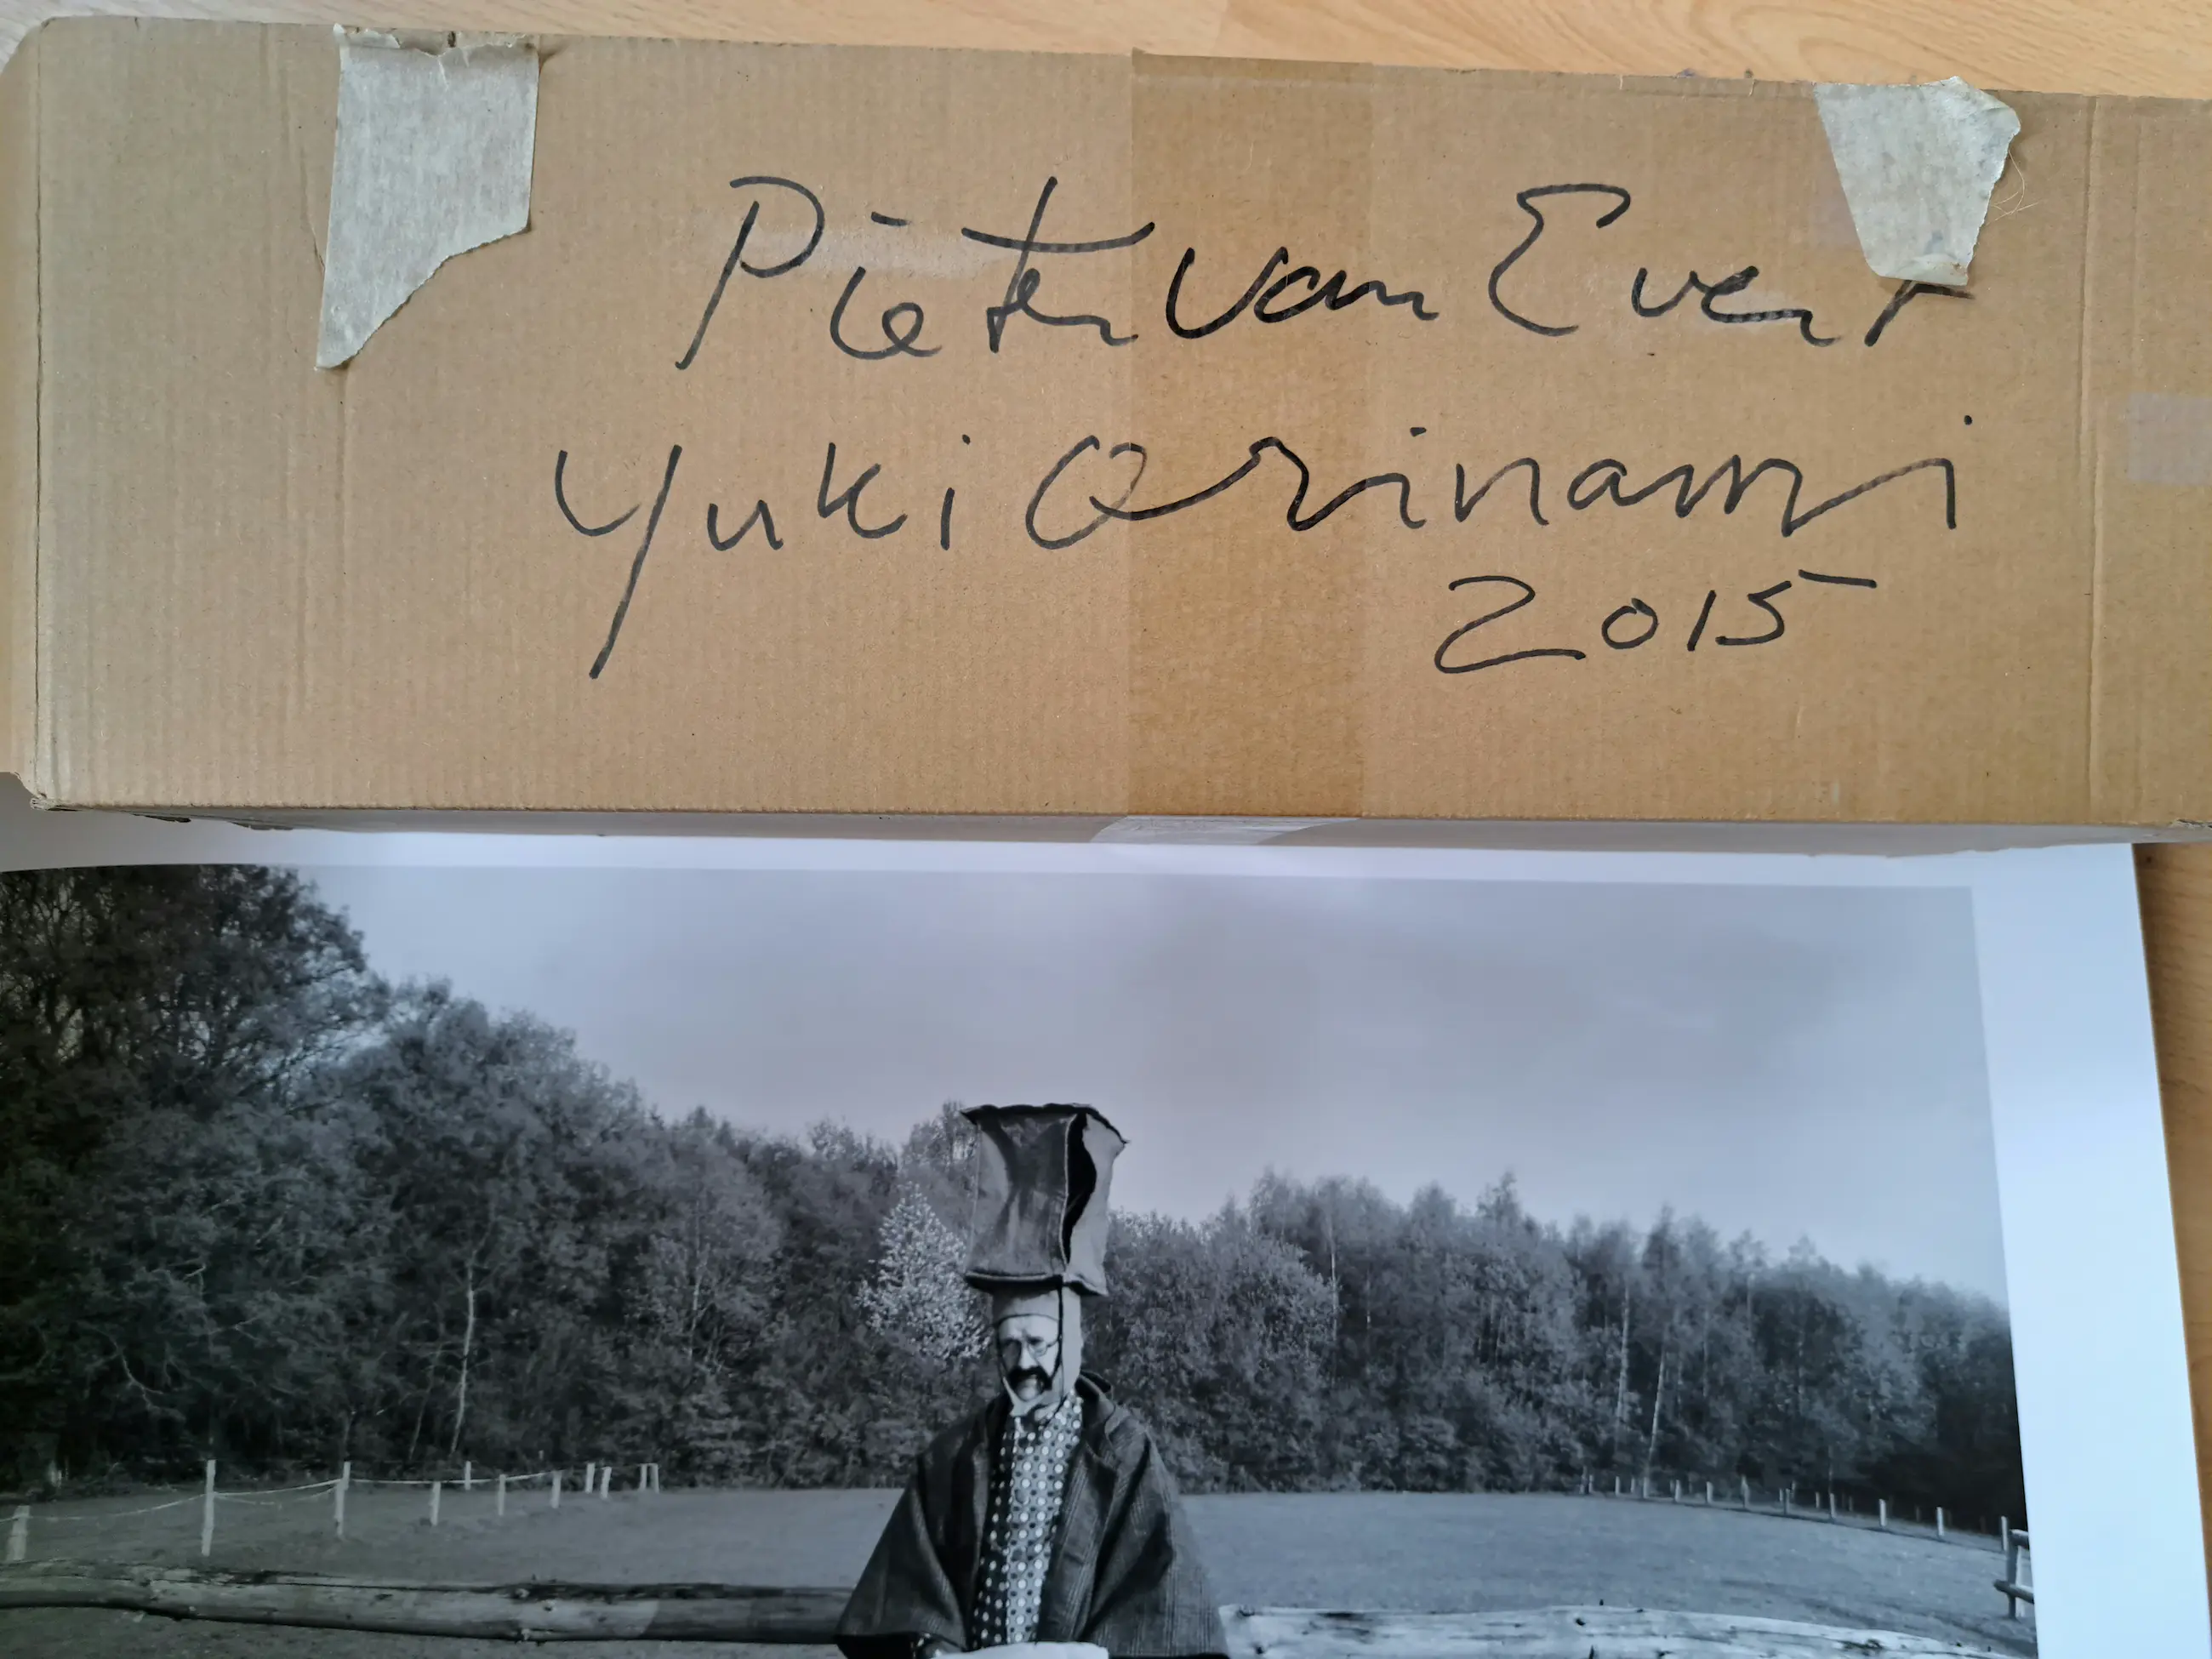 Pieter van Evert
Yuki Orinami
2015